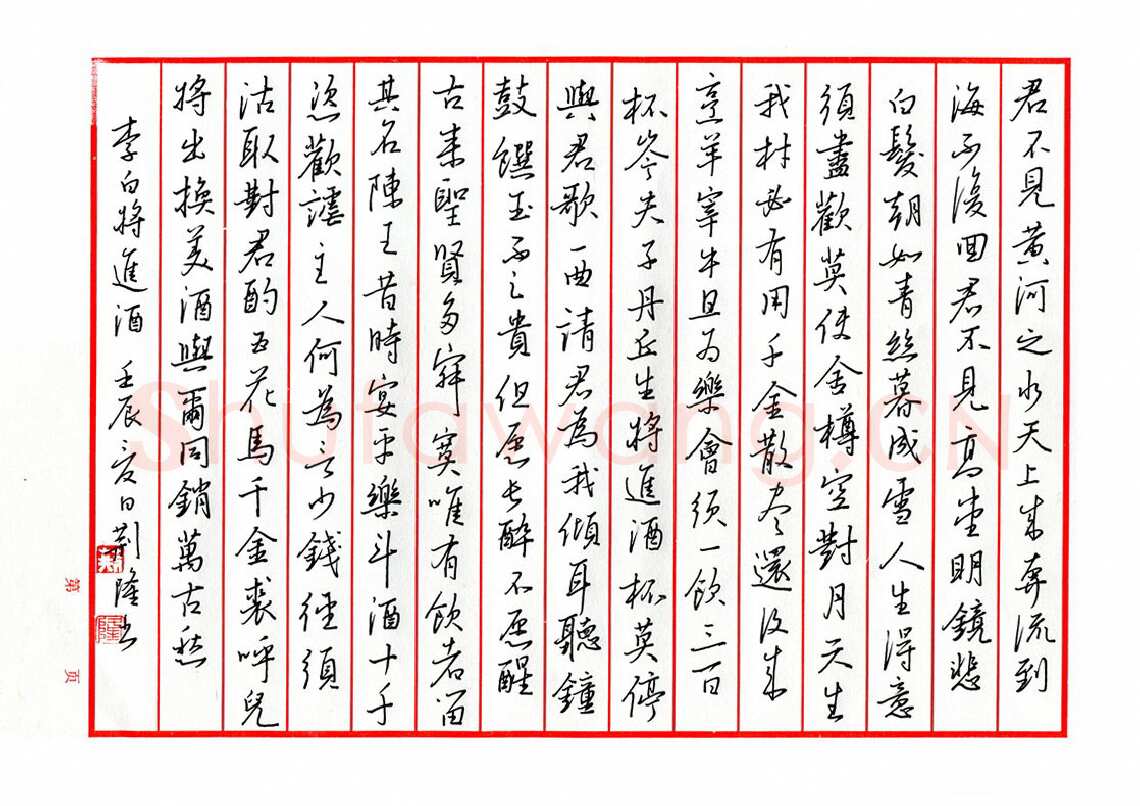 君不見黃河之水天上來奔流到
海不復回君不見高堂明鏡悲
白髮朝如青絲暮成雪人生得意
須盡歡莫使金樽空對月天生
我材必有用千金散盡還復來
烹羊宰牛且为樂會須一飲三百
杯岑夫子丹丘生將進酒杯莫停
與君歌一曲請君為我傾耳聽鐘
鼓饌玉不足貴但愿長醉不愿醒
古來聖賢多寂寞唯有飲者留
其名陳王昔時宴平樂斗酒十千
恣歡謔主人何為言少錢徑須
沽取對君酌五花馬千金裘呼兒
將出換美酒與爾同銷萬古愁
李白將進酒 壬辰夏日荊隆書
第 页
Shufawang.CN